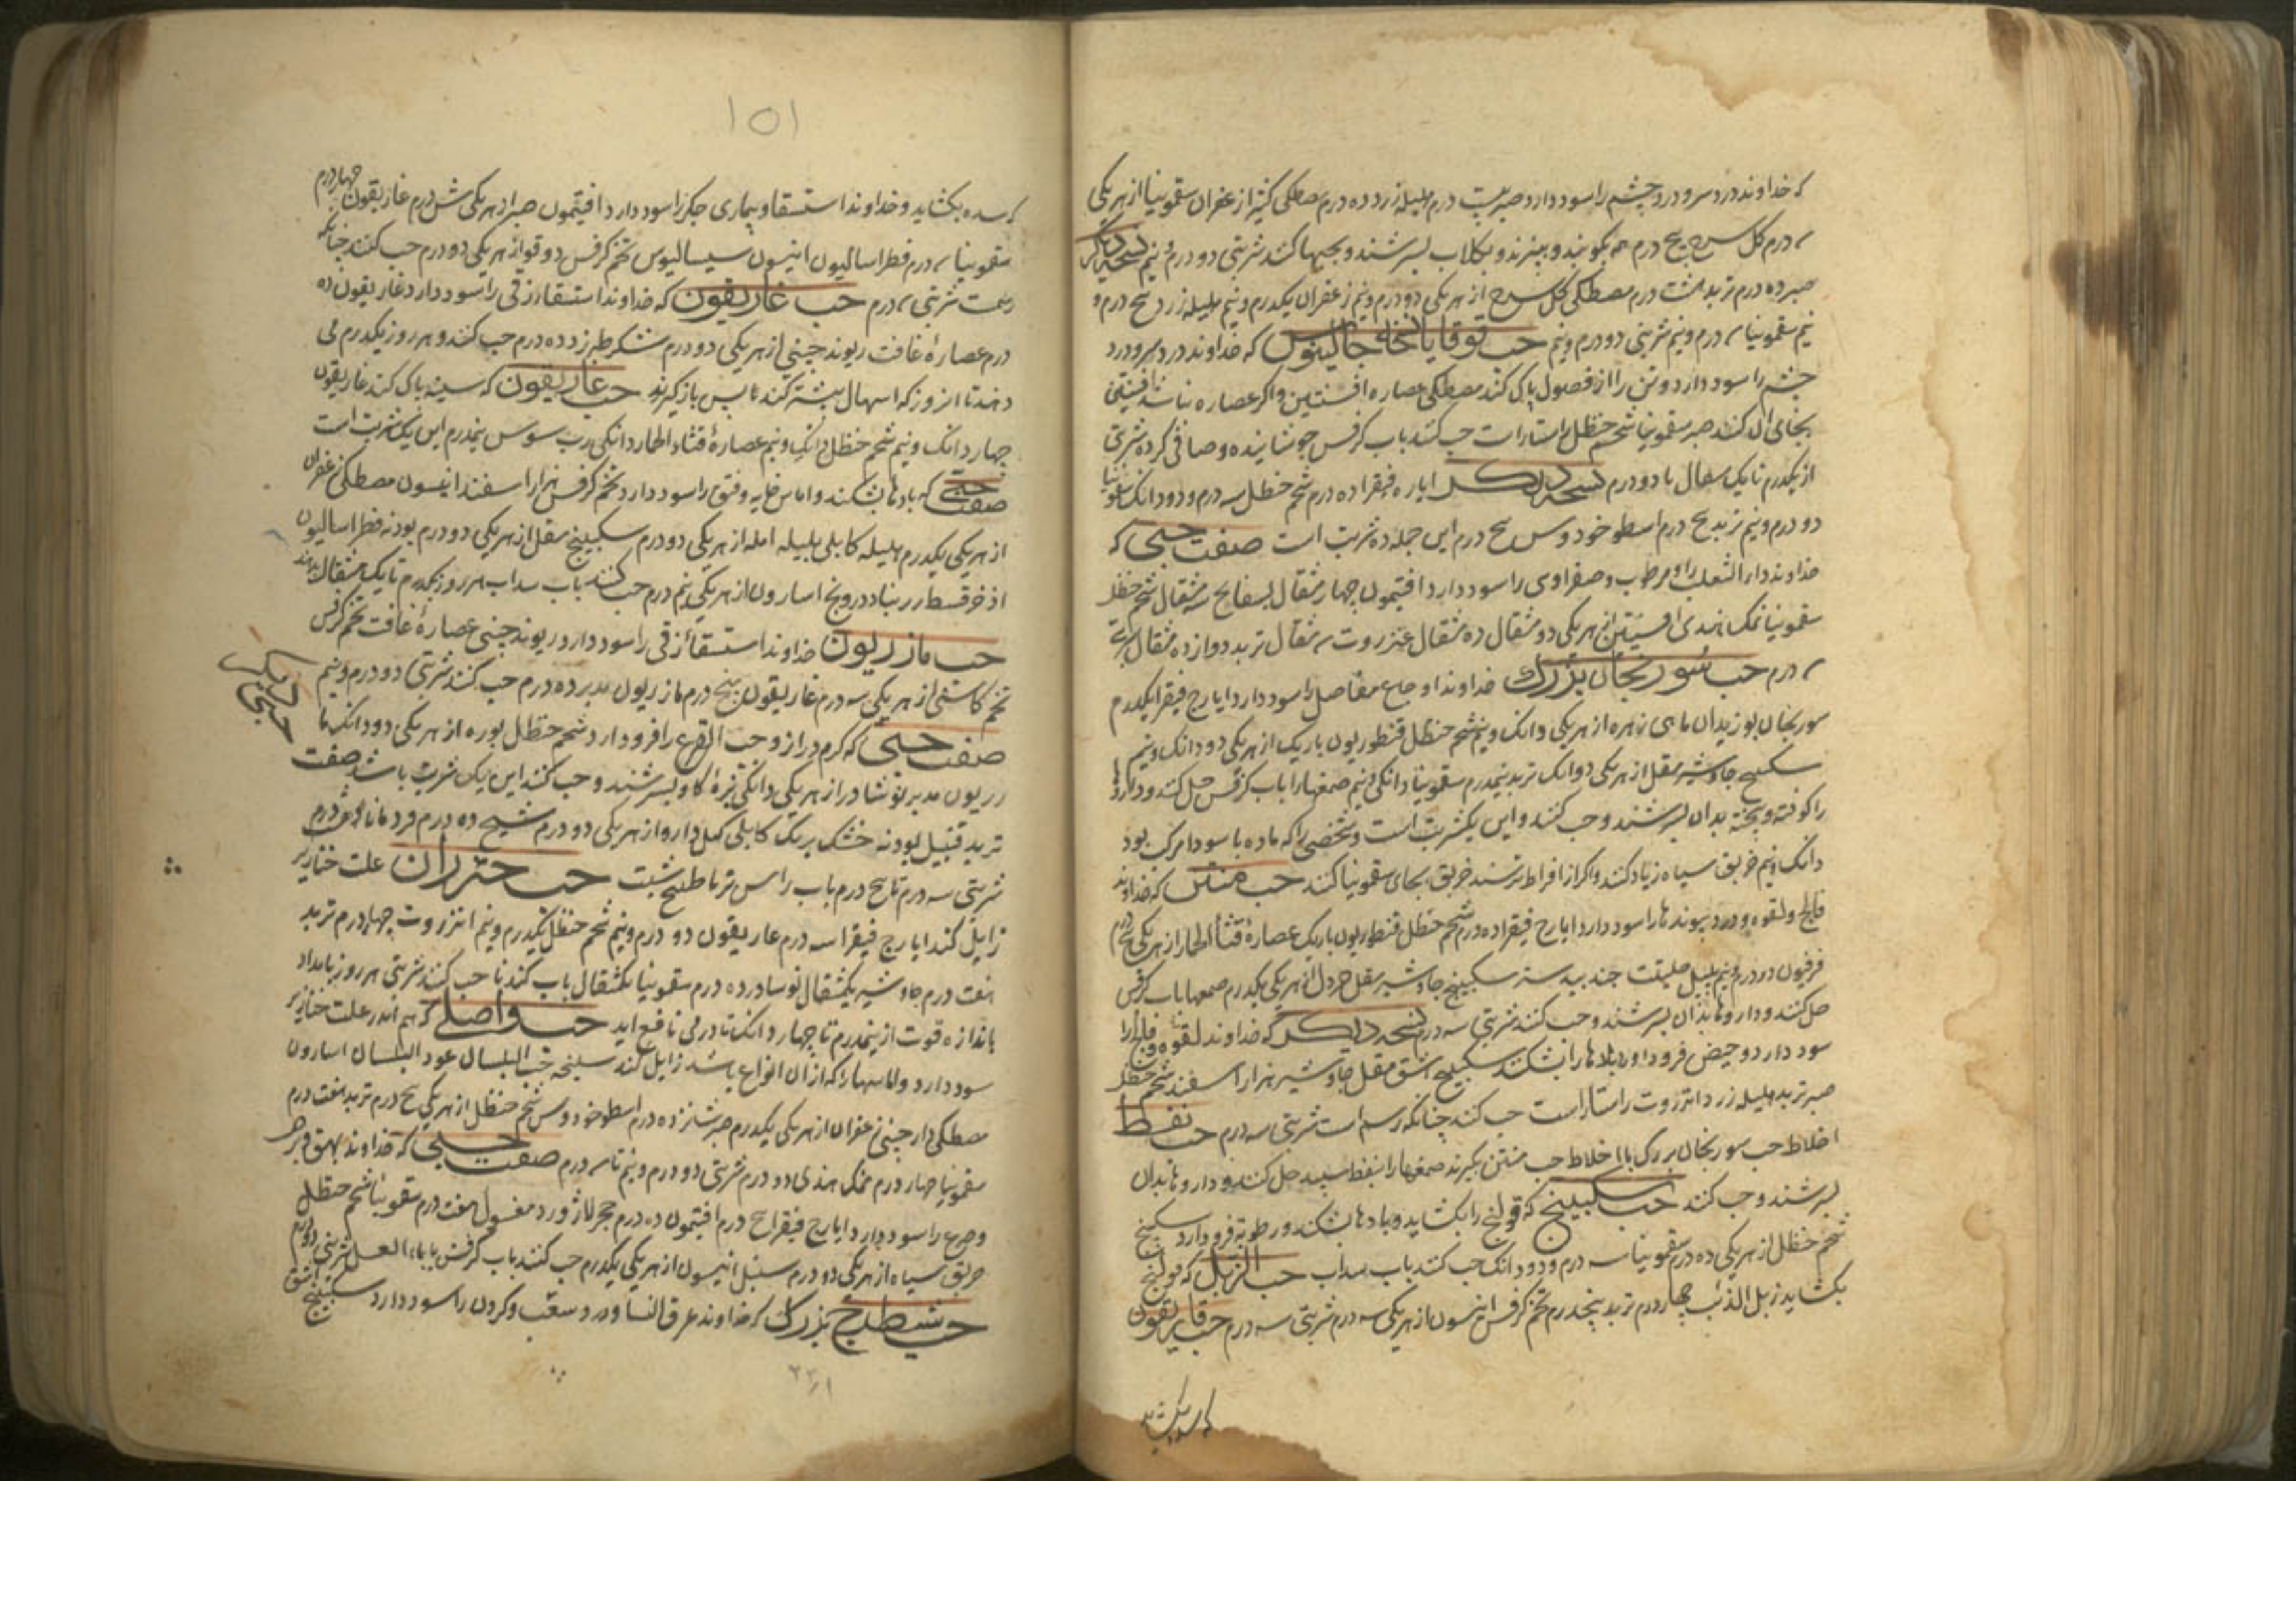 که خداوند درد سر و درد چشم را سود دارد صبر بیست درم هلیله زرد ده درم مصطکی کتیرا زعفران سقمونیا از هریکی
درم کل سرخ پنج درم همه بکوبند و ببیزند و بکلاب بسرشند و حبها کنند شربتی دو درم و نیم نسخه دیگر
صبر ده درم تربد هشت درم مصطکی کل سرخ از هریکی دو درم و نیم زعفران یکدرم و نیم هلیله زرد پنج درم و
نیم سقمونیا درم و نیم شربتی دو درم و نیم حب قوقایا نسخه جالینوس که خداوند درد سر و درد
چشم را سود دارد و تن را از فضول پاک کند مصطکی عصاره افسنتین و اکر عصاره نباشد افسنتین
بجای آن کنند صبر سقمونیا شحم حنظل راستاراست حب کنند باب کرفس جوشانیده و صافی کرده شربتی
از یکدرم تا یک مثقال تا دو درم نسخه دیکر ایاره فیقرا ده درم شحم حنظل سه درم و دو دانک سقمونیا
دو درم و نیم تربد پنج درم اسطوخودوس پنج درم این جمله ده شربت است صفت حبی که
خداوند داء الثعلب را و مرطوب و صفراوی را سود دارد افتیمون چهار مثقال بسفایج سه مثقال شحم حنظل
سقمونیا نمک هندی افسنتین از هریکی دو مثقال ده مثقال عنزروت مثقال تربد دوازده مثقال شربتی
درم حب سورنجان بزرک خداوند اوجاع مفاصل را سود دارد ایارج فیقرا یکدرم
سورنجان بوزیدان ماهی زهره از هریکی دانک و نیم شحم حنظل قنطوریون باریک از هریکی دو دانک و نیم
سکبینج جاوشیر مقل از هریکی دو دانک تربد نیمدرم سقمونیا دانکی و نیم صمغها را باب کرفس حل کنند و داروها
را کوفته و بیخته بدان بسرشند و حب کنند و این یکشربت است و شخصی را که ماده با سودا مرکب بود
دانک و نیم خربق سیاه زیاد کنند و اکر از افراط ترسند خربق بجای سقمونیا کنند حب منتن که خداوند
فالج و لقوه و درد پیوندها را سود دارد ایارج فیقرا ده درم شحم حنظل قنطوریون باریک عصارهٔ قثاء الحمار از هریکی پنج درم
فرفیون دو درم و نیم پلپل حلتیت جند بیدستر سکبینج جاوشیر مقل خردل از هریکی یکدرم صمغها باب کرفس
حل کنند و داروها بدان بسرشند و حب کنند شربتی سه درم نسخه دیکر که خداوند لقوه و فالج را
سود دارد و حیض فرود آورد و بلادها را بشکند سکبینج اشق مقل جاوشیر هزار اسفند شحم حنظل
صبر تربد هلیله زرد انزروت راستاراست حب کنند چنانکه رسم است شربتی سه درم حب نفط
اخلاط حب سورنجان بزرک با اخلاط حب منتن بکیرند صمغها را بنفط سپید حل کنند و داروها بدان
بسرشند و حب کنند حب سکبینج که قولنج را بکشاید و بادها بشکند و رطوبة فرود آرد سکبینج
شحم حنظل از هریکی ده درم سقمونیا سه درم و دو دانک حب کنند باب سداب حب الزبل که قولنج
بکشاید زبل الذئب چهار درم تربد پنجدرم تخم کرفس انیسون از هریکی سه درم شربتی سه درم حب غاریقون
که سده بکشاید
۱۵۱
که سده بکشاید و خداوند استسقا و بیماری جکر را سود دارد افتیمون صبر از هریکی شش درم غاریقون چهار درم
سقمونیا درم فطراسالیون انیسون سیسالیوس تخم کرفس دوقو از هریکی دو درم حب کنند چنانکه
رسمست شربتی درم حب غاریقون که خداوند استسقا زقی را سود دارد غاریقون ده
درم عصارهٔ غافت ریوند چینی از هریکی دو درم شکر طبرزد ده درم حب کنند و هر روز یکدرم می
دهند تا آن روز که اسهال بیشتر کند تا پس باز کیرند حب غاریقون که سینه پاک کند غاریقون
چهار دانک و نیم شحم حنظل دانک و نیم عصارهٔ قثاء الحمار دانکی رب سوس نیمدرم این یک شربت است
صفت حبی که بادها بشکند و اماس خایه و فتق را سود دارد تخم کرفس هزار اسفند انیسون مصطکی زعفران
از هریکی یکدرم هلیله کابلی بلیله آمله از هریکی دو درم سکبینج مقل از هریکی دو درم پودنه فطراسالیون
اذخر قسط زرنباد درونج اسارون از هریکی نیم درم حب کنند باب سداب هر روز یکدرم تا یک مثقال بدهند
حب مازریون خداوند استسقاء زقی را سود دارد ریوند چینی عصارهٔ غافت تخم کرفس
تخم کاسنی از هریکی سه درم غاریقون پنج درم مازریون مدبر ده درم حب کنند شربتی دو درم و نیم
حبی دیکر
صفت حبی که کرم دراز و حب القرع را فرود آرد شحم حنظل بوره از هریکی دو دانک
زریون مدبر نوشادر از هریکی دانکی بزهرهٔ کاو بسرشند و حب کنند این یک شربت باشد صفت
تربد قنبیل پودنه خشک برنک کابلی کمل دارو از هریکی دو درم شیح ده درم
شربتی سه درم تا پنج درم باب راسن تر یا طبیخ شبت حب علت خنازیر
زایل کند ایارج فیقرا سه درم غاریقون دو درم و نیم شحم حنظل یکدرم و نیم انزروت چهار درم تربد
هفت درم جاوشیر یکمثقال نوشادر ده درم سقمونیا یکمثقال باب کندنا حب کنند شربتی هر روز بامداد
باندازه قوت از نیمدرم تا چهار دانک تا درمی نافع آید حب واصلی که هم اندر علت خنازیر
سود دارد و اماسها را که از آن انواع باشد زایل کند سلیخه حب البلسان عود البلسان اسارون
مصطکی دارچینی زعفران از هریکی یکدرم صبر شانزده درم اسطوخودوس شحم حنظل از هریکی پنج درم تربد هفت درم
سقمونیا چهار درم نمک هندی دو درم شربتی دو درم و نیم تا درم صفت حبی که خداوند بهق و برص
و صرع را سود دارد ایارج فیقرا پنج درم افتیمون ده درم حجر لاژورد مغسول هفت درم سقمونیا شحم حنظل
خربق سیاه از هریکی دو درم سنبل انیسون از هریکی یکدرم حب کنند باب کرفس یا بماء العسل شربتی دو درم
حب شیطرج بزرک که خداوند عرق النسا و درد سغب و کردن را سود دارد سکبینج اشق